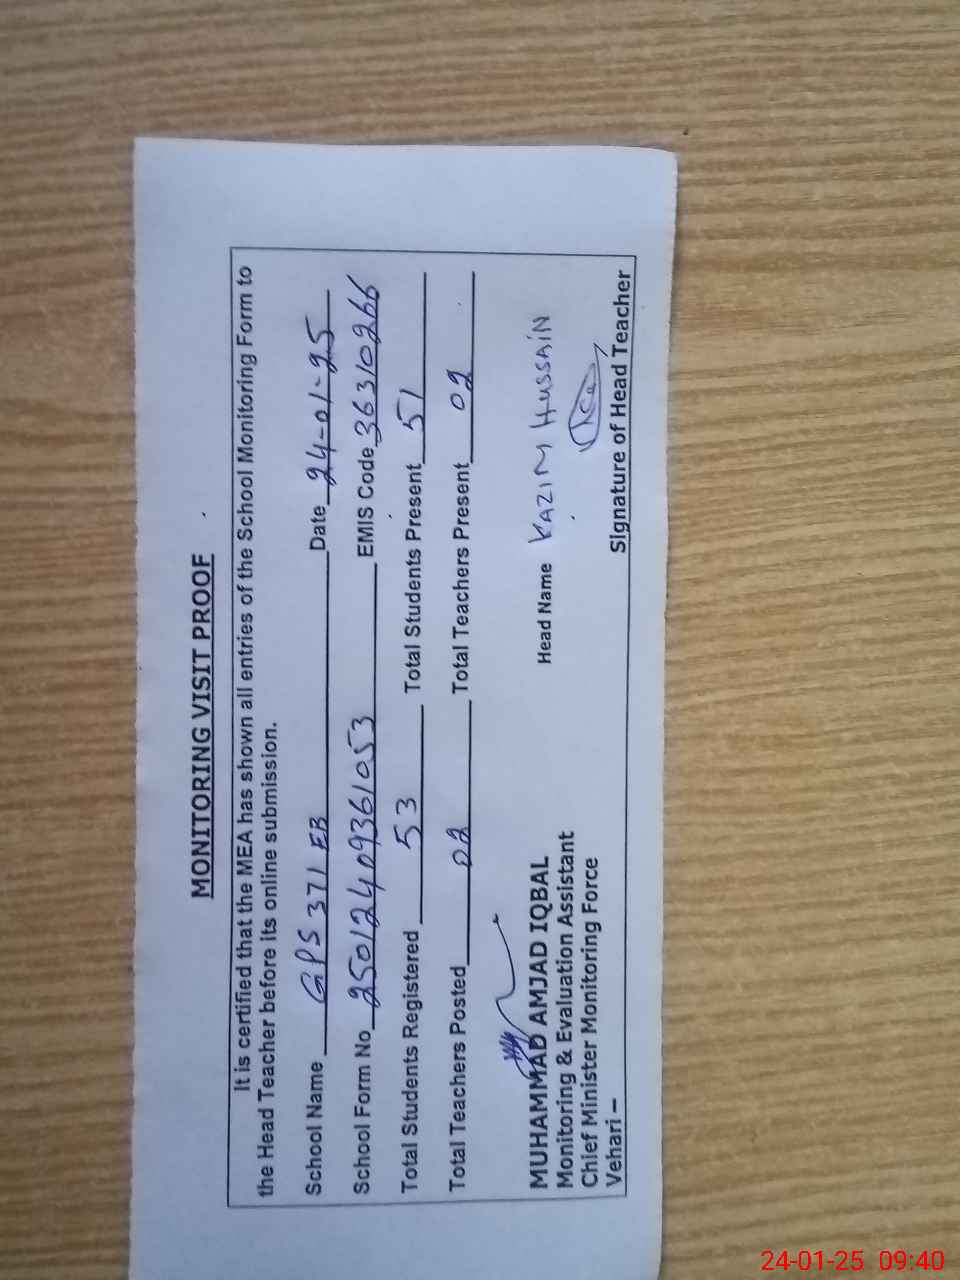 MONITORING VISIT PROOF
It is certified that the MEA has shown all entries of the School Monitoring Form to
the Head Teacher before its online submission.
School Name GPS 371 EB Date 24-01-25
School Form No 25012409361053 EMIS Code 36310266
Total Students Registered 53 Total Students Present 51
Total Teachers Posted 02 Total Teachers Present 02
MUHAMMAD AMJAD IQBAL
Monitoring & Evaluation Assistant
Chief Minister Monitoring Force
Vehari –
Head Name KAZIM HUSSAIN
Signature of Head Teacher
24-01-25 09:40